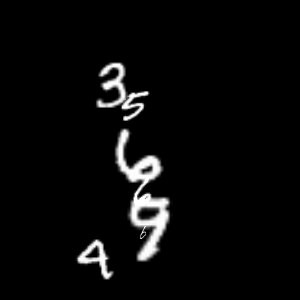 3
5
6
6
9
6
4